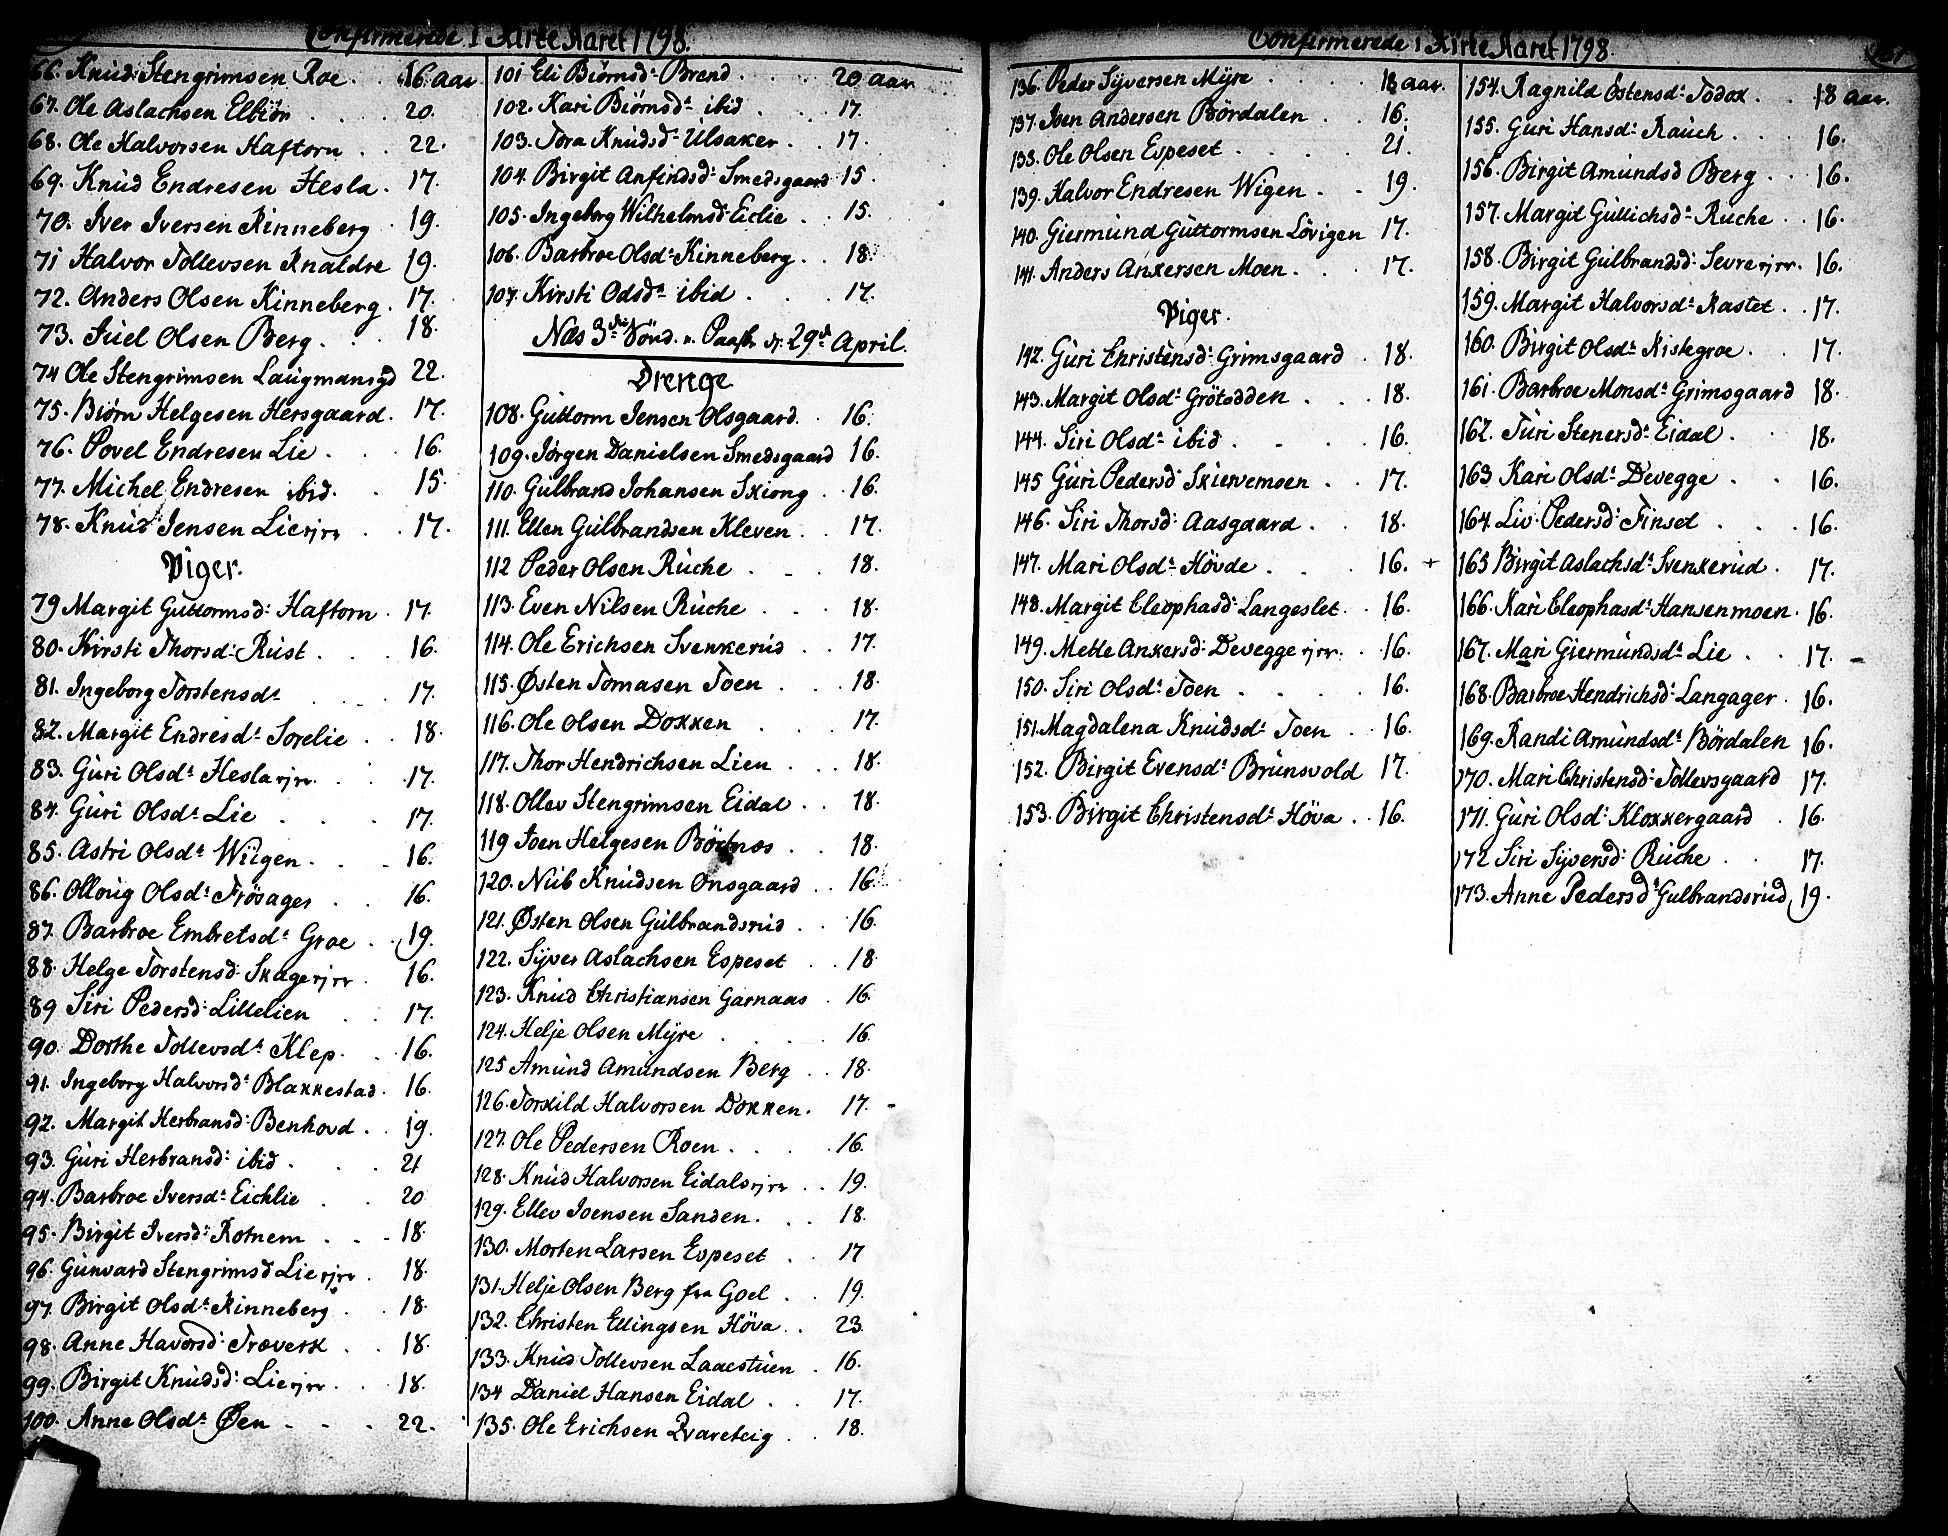 Confirmerede i Kirke Aaret 1798.
66. Knud Stengrimsen Roe . 16 Aar
67. Ole Aslachsen Elbiör . . . . 20.
68. Ole Halvorsen Haftorn . . 22.
69. Knud Endresen Hesla . 17.
70. Iver Iversen Kinneberg . 19.
71 Halvor Tollevsen Knaldre 19.
72. Anders Olsen Kinneberg . 17.
73. Juel Olsen Berg . . . 18.
74 Ole Stengrimsen Laugmansgd 22.
75. Biörn Helgesen Hersgaard . 17.
76. Povel Endresen Lie . . 16.
77. Michel Endresen ibid. . 15.
78. Knud Jensen Lie ejer . . 17.
Piger.
79 Margit Guttormsd: Haftorn . 17.
80. Kirsti Thorsd: Rust . . . 16.
81. Ingeborg Torstensdr . . . 17.
82. Margit Endresdr Sorelie . . 18.
83. Guri Olsdr Hesla ejer . . . 17.
84. Guri Olsdr Lie . . . . 17.
85. Astri Olsdr Wiigen . . . 16.
86. Olloug Olsdr Frösager . . 16.
87. Barbroe Embretsdr Groe . . 19.
88. Helge Torstensd: Skage ejer . 16.
89 Siri Pedersd: Lillelien . . 17.
90. Dorthe Tollevsdr Klep . . 16.
91. Ingeborg Halvorsdr Blakkestad . 16.
92. Margit Herbransd: Benhovd . . 19.
93. Guri Herbransd: ibid . . . . 21
94. Barbroe Iversdr Eichlie . . 20
95. Birgit Iversd: Rotnem . . . 18.
96. Gunvard Stengrimsd Lie ejer . 18.
97. Birgit Olsdr Kinneberg . . 18.
98. Anne Havorsd: Træverk . . 18.
99. Birgit Knudsd: Lie ejer . . . 18.
100. Anne Olsdr Øen . . . . 22.
101 Eli Biörnsdr Brend . . . . 20 aar
102. Kari Biörnsdr ibid . . . 17.
103. Tora Knudsdr Ulsaker . . 17.
104. Birgit Anfindsd: Smedsgaard 15.
105. Ingeborg Wilhelmsd: Eclie . . 15.
106. Barbroe Olsdr Kinneberg . . 18.
107. Kirsti Odsdr ibid . . . 17.
Næs 3die Sönd. e. Paaske d: 29de April.
Drenge
108. Guttorm Jensen Olsgaard . 16.
109. Jörgen Danielsen Smedsgaard 16.
110. Gulbrand Johansen Skiong . 16.
111. Ellen Gulbrandsen Kleven . . 17.
112 Peder Olsen Ruche . . . 18.
113. Even Nilsen Ruche . . . 18.
114. Ole Erichsen Svenkerud . . 17.
115. Østen Tomasen Toen . . . 18.
116. Ole Olsen Dokken . . 17.
117. Thor Hendrichsen Lien . . . 18.
118. Ollev Stengrimsen Eidal . . 18.
119 Joen Helgesen Börtnes . . 18.
120. Niib Knudsen Onsgaard . . 16.
121. Østen Olsen Gulbrandsrud . . 16.
122. Syver Aslachsen Espeset . . 18.
123. Knud Christiansen Garnaas . 16.
124. Helje Olsen Myre . . . . 16.
125 Amund Amundsen Berg . . 18.
126. Torkild Halvorsen Dokken . 17.
127. Ole Pedersen Roen . . . . 16.
128. Knud Halvorsen Eidals ejer . . 19.
129. Ellev Joensen Sanden . . . 18.
130. Morten Larsen Espeset . . 17
131. Helje Olsen Berg fra Goel . . 19.
132. Christen Ellingsen Höva . . 23.
133. Knud Tollevsen Laaestuen . 16.
134 Daniel Hansen Eidal . . 17.
135. Ole Erichsen Qvareteig . . 18.
Confirmerede i Kirke Aaret 1798.
136. Peder Syversen Myre . . . . 18 aar.
137. Joen Andersen Bördalen . . 16.
138. Ole Olsen Espeset . . . . 21.
139. Halvor Endresen Wigen . . 19.
140. Giermund Guttormsen Lövigen 17.
141. Anders Ankersen Moen . . . 17.
Piger.
142. Guri Christensd: Grimsgaard . 18.
143. Margit Olsd: Grötodden . . . 18.
144. Siri Olsdr ibid . . . . 16.
145 Guri Pedersd: Skiervemoen . . 17.
146. Siri Thorsd: Aasgaard . . . 18.
147. Mari Olsdr Hövde . . . 16. +
148. Margit Eleophasd: Langeslet . . 16.
149. Mette Ankersd: Devegge ejer . . 16.
150. Siri Olsdr Toen . . . . 16.
151. Magdalena Knudsdr Toen . . 16.
152. Birgit Evensdr Brunsvold . 17.
153. Birgit Christensdr Höva . . 16.
154. Ragnild Östensdr Todok . . 18 aar.
155. Guri Hansd: Rauch . . . 16.
156. Birgit Amundsd Berg . . 16.
157. Margit Gullichsdr Ruche . . 16.
158. Birgit Gulbrandsd: Sevre ejer . 16.
159. Margit Halvorsdr Kastet . . 17.
160. Birgit Olsdr Kistegroe . . 17.
161. Barbroe Monsdr Grimsgaard 18.
162. Turi Stenersdr Eidal . . 18.
163 Kari Olsdr Devegge . . 16.
164. Liv Pedersd: Finset . . . 16.
165 Birgit Aslachsdr Svenkerud . 17.
166. Kari Eleophasdr Hansenmoen . 16.
167. Mari Giermundsdr Lie . . 17.
168. Barbroe Hendrichsd: Langager . 16.
169. Randi Amundsdr Bördalen 16.
170. Mari Christensd: Tollevsgaard 17.
171. Guri Olsd: Klokkergaard . 16.
172 Siri Syversd: Ruche . . 17.
173. Anne Pedersdr Gulbrandsrud 19.